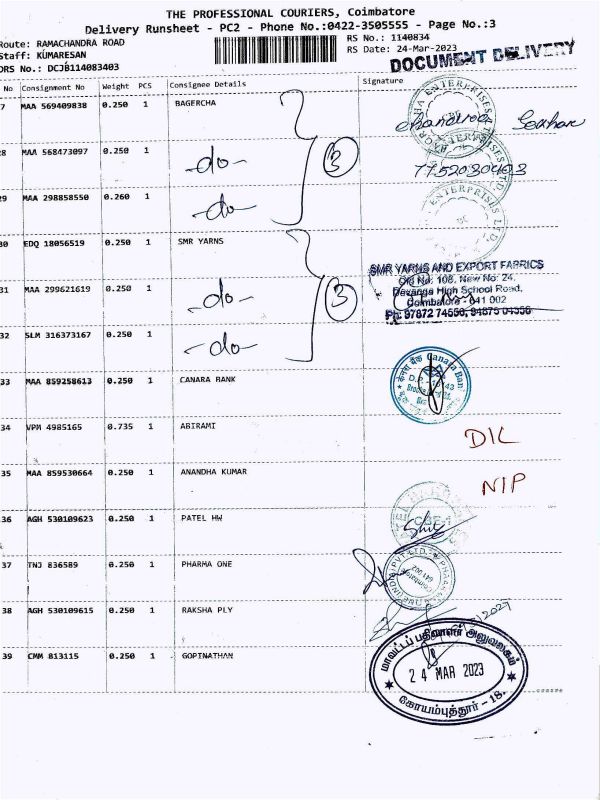 THE PROFESSIONAL COURIERS, Coimbatore
Delivery Runsheet - PC2 - Phone No.:0422-3505555 - Page No.:3
Route: RAMACHANDRA ROAD RS No.: 1140834
Staff: KUMARESAN RS Date: 24-Mar-2023
DRS No.: DCJB114083403 DOCUMENT DELIVERY
No Consignment No Weight PCS Consignee Details Signature
7 MAA 569409838 0.250 1 BAGERCHA
28 MAA 568473097 0.250 1 -do- 3
7752030403
29 MAA 298858550 0.260 1 -do-
ENTERPRISES LTD.
30 EDQ 18056519 0.250 1 SMR YARNS
SMR YARNS AND EXPORT FABRICS
Old No. 108, New No. 24,
31 MAA 299621619 0.250 1 -do- 3
Devanga High School Road,
Coimbatore - 641 002
Ph: 97872 74556, 94875 04556
32 SLM 316373167 0.250 1 -do-
33 MAA 859258613 0.250 1 CANARA BANK
केनरा बैंक Canara Bank
34 VPM 4985165 0.735 1 ABIRAMI
DIL
35 MAA 859530664 0.250 1 ANANDHA KUMAR
NIP
36 AGH 530109623 0.250 1 PATEL HW
37 TNJ 836589 0.250 1 PHARMA ONE
Coimbatore
641 002
38 AGH 530109615 0.250 1 RAKSHA PLY
39 CMM 813115 0.250 1 GOPINATHAN
மாவட்டப் பதிவாளர் அலுவலகம்
24 MAR 2023
கோயம்புத்தூர் - 18.